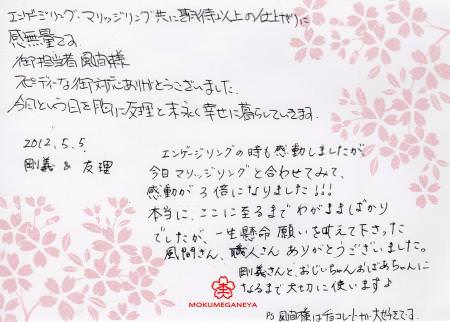 エンゲージリング・マリッジリング共に期待以上の仕上がりに
感無量です。
御担当者 風間様
スピディーな御対応ありがとうございました。
今日という日を胸に友理と末永く幸せに暮らしていきます。
2012.5.5.
剛義 & 友理
エンゲージリングの時も感動しましたが、
今日マリッジリングと合わせてみて、
感動が3倍になりました!!!
本当に、ここに至るまでわがままばかり
でしたが、一生懸命願いを叶えて下さった
風間さん、職人さんありがとうございました。
剛義さんと、おじいちゃんおばあちゃんに
なるまで大切に使います♪
MOKUMEGANEYA
PS 風間様はチョコレートが大好きです。